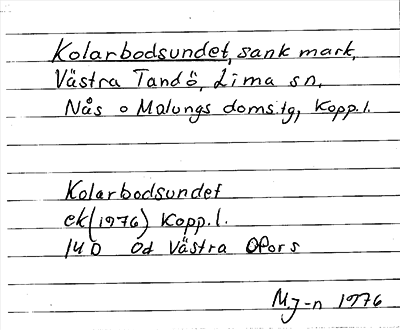 Kolarbodsundet, sank mark,
Västra Tandö, Lima sn,
Nås o Malungs doms.tg, Kopp.l.
Kolarbodsundet
ek(1976) Kopp.l.
14D 0d Västra Ofors
MJ-n 1976